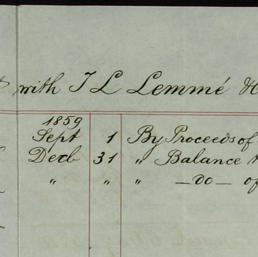 with T L Lemmé &
1859
Sept 1 By Proceeds of
Decb 31 " Balance
" " — do — of